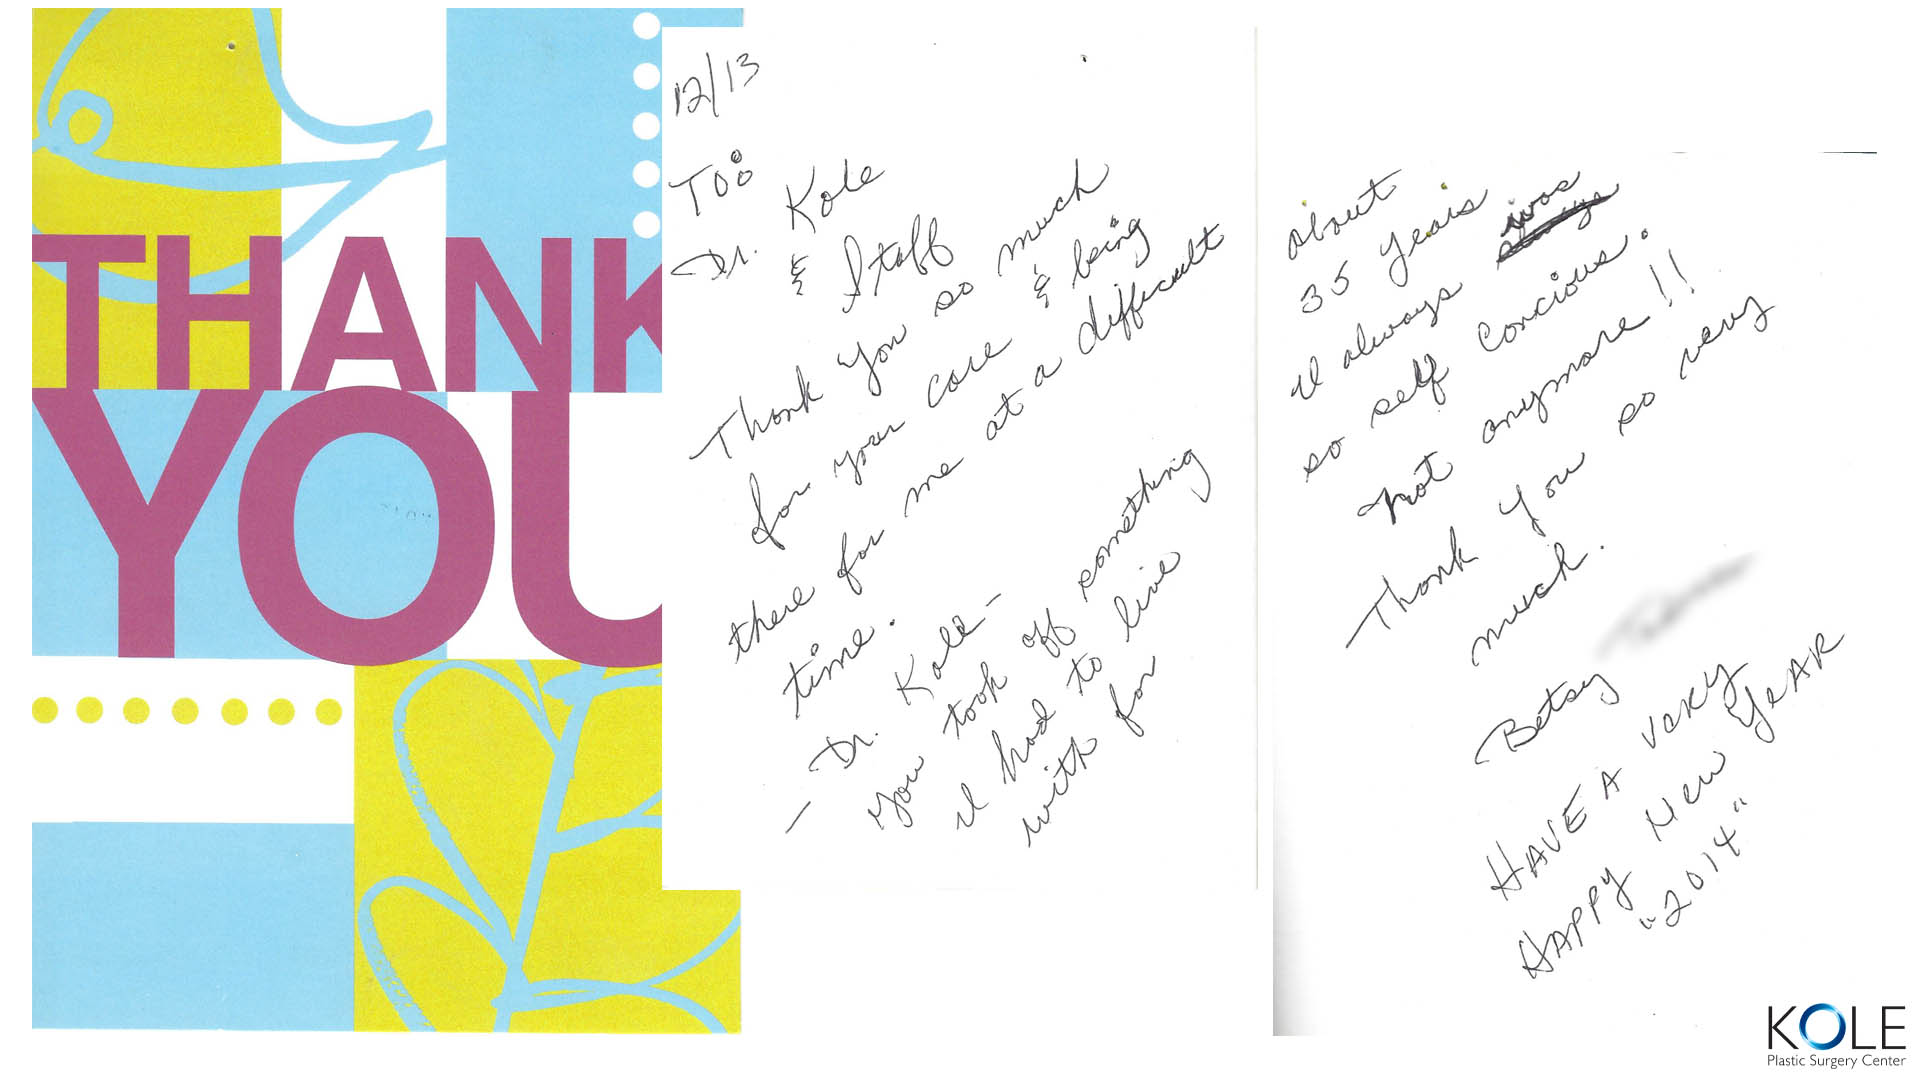 THANK
YOU
12/13
To:
Dr. Kole
& Staff
Thank you so much
for your care & being
there for me at a difficult
time.
- Dr. Kole -
you took off something
I had to live
with for
about
35 years
I always was
so self Concious.
Not anymore!!
Thank you so very
much.
Betsy
HAVE A VERY
HAPPY New YeAR
"2014"
KOLE
Plastic Surgery Center